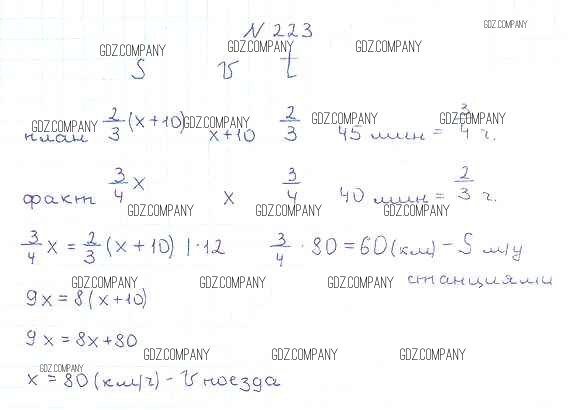 N 223
GDZ.COMPANY
GDZ.COMPANY GDZ.COMPANY GDZ.COMPANY
S v t
GDZ.COMPANY GDZ.COMPANY GDZ.COMPANY GDZ.COMPANY
план 2/3 (x+10) x+10 2/3 45 мин = 3/4 ч.
факт 3/4 x x 3/4 40 мин = 2/3 ч.
GDZ.COMPANY GDZ.COMPANY GDZ.COMPANY
3/4 x = 2/3 (x+10) | · 12 3/4 · 80 = 60 (км) – S м/у
станциями
GDZ.COMPANY GDZ.COMPANY GDZ.COMPANY
9x = 8(x+10)
9x = 8x+80
GDZ.COMPANY GDZ.COMPANY GDZ.COMPANY
GDZ.COMPANY
x = 80 (км/ч) – v поезда